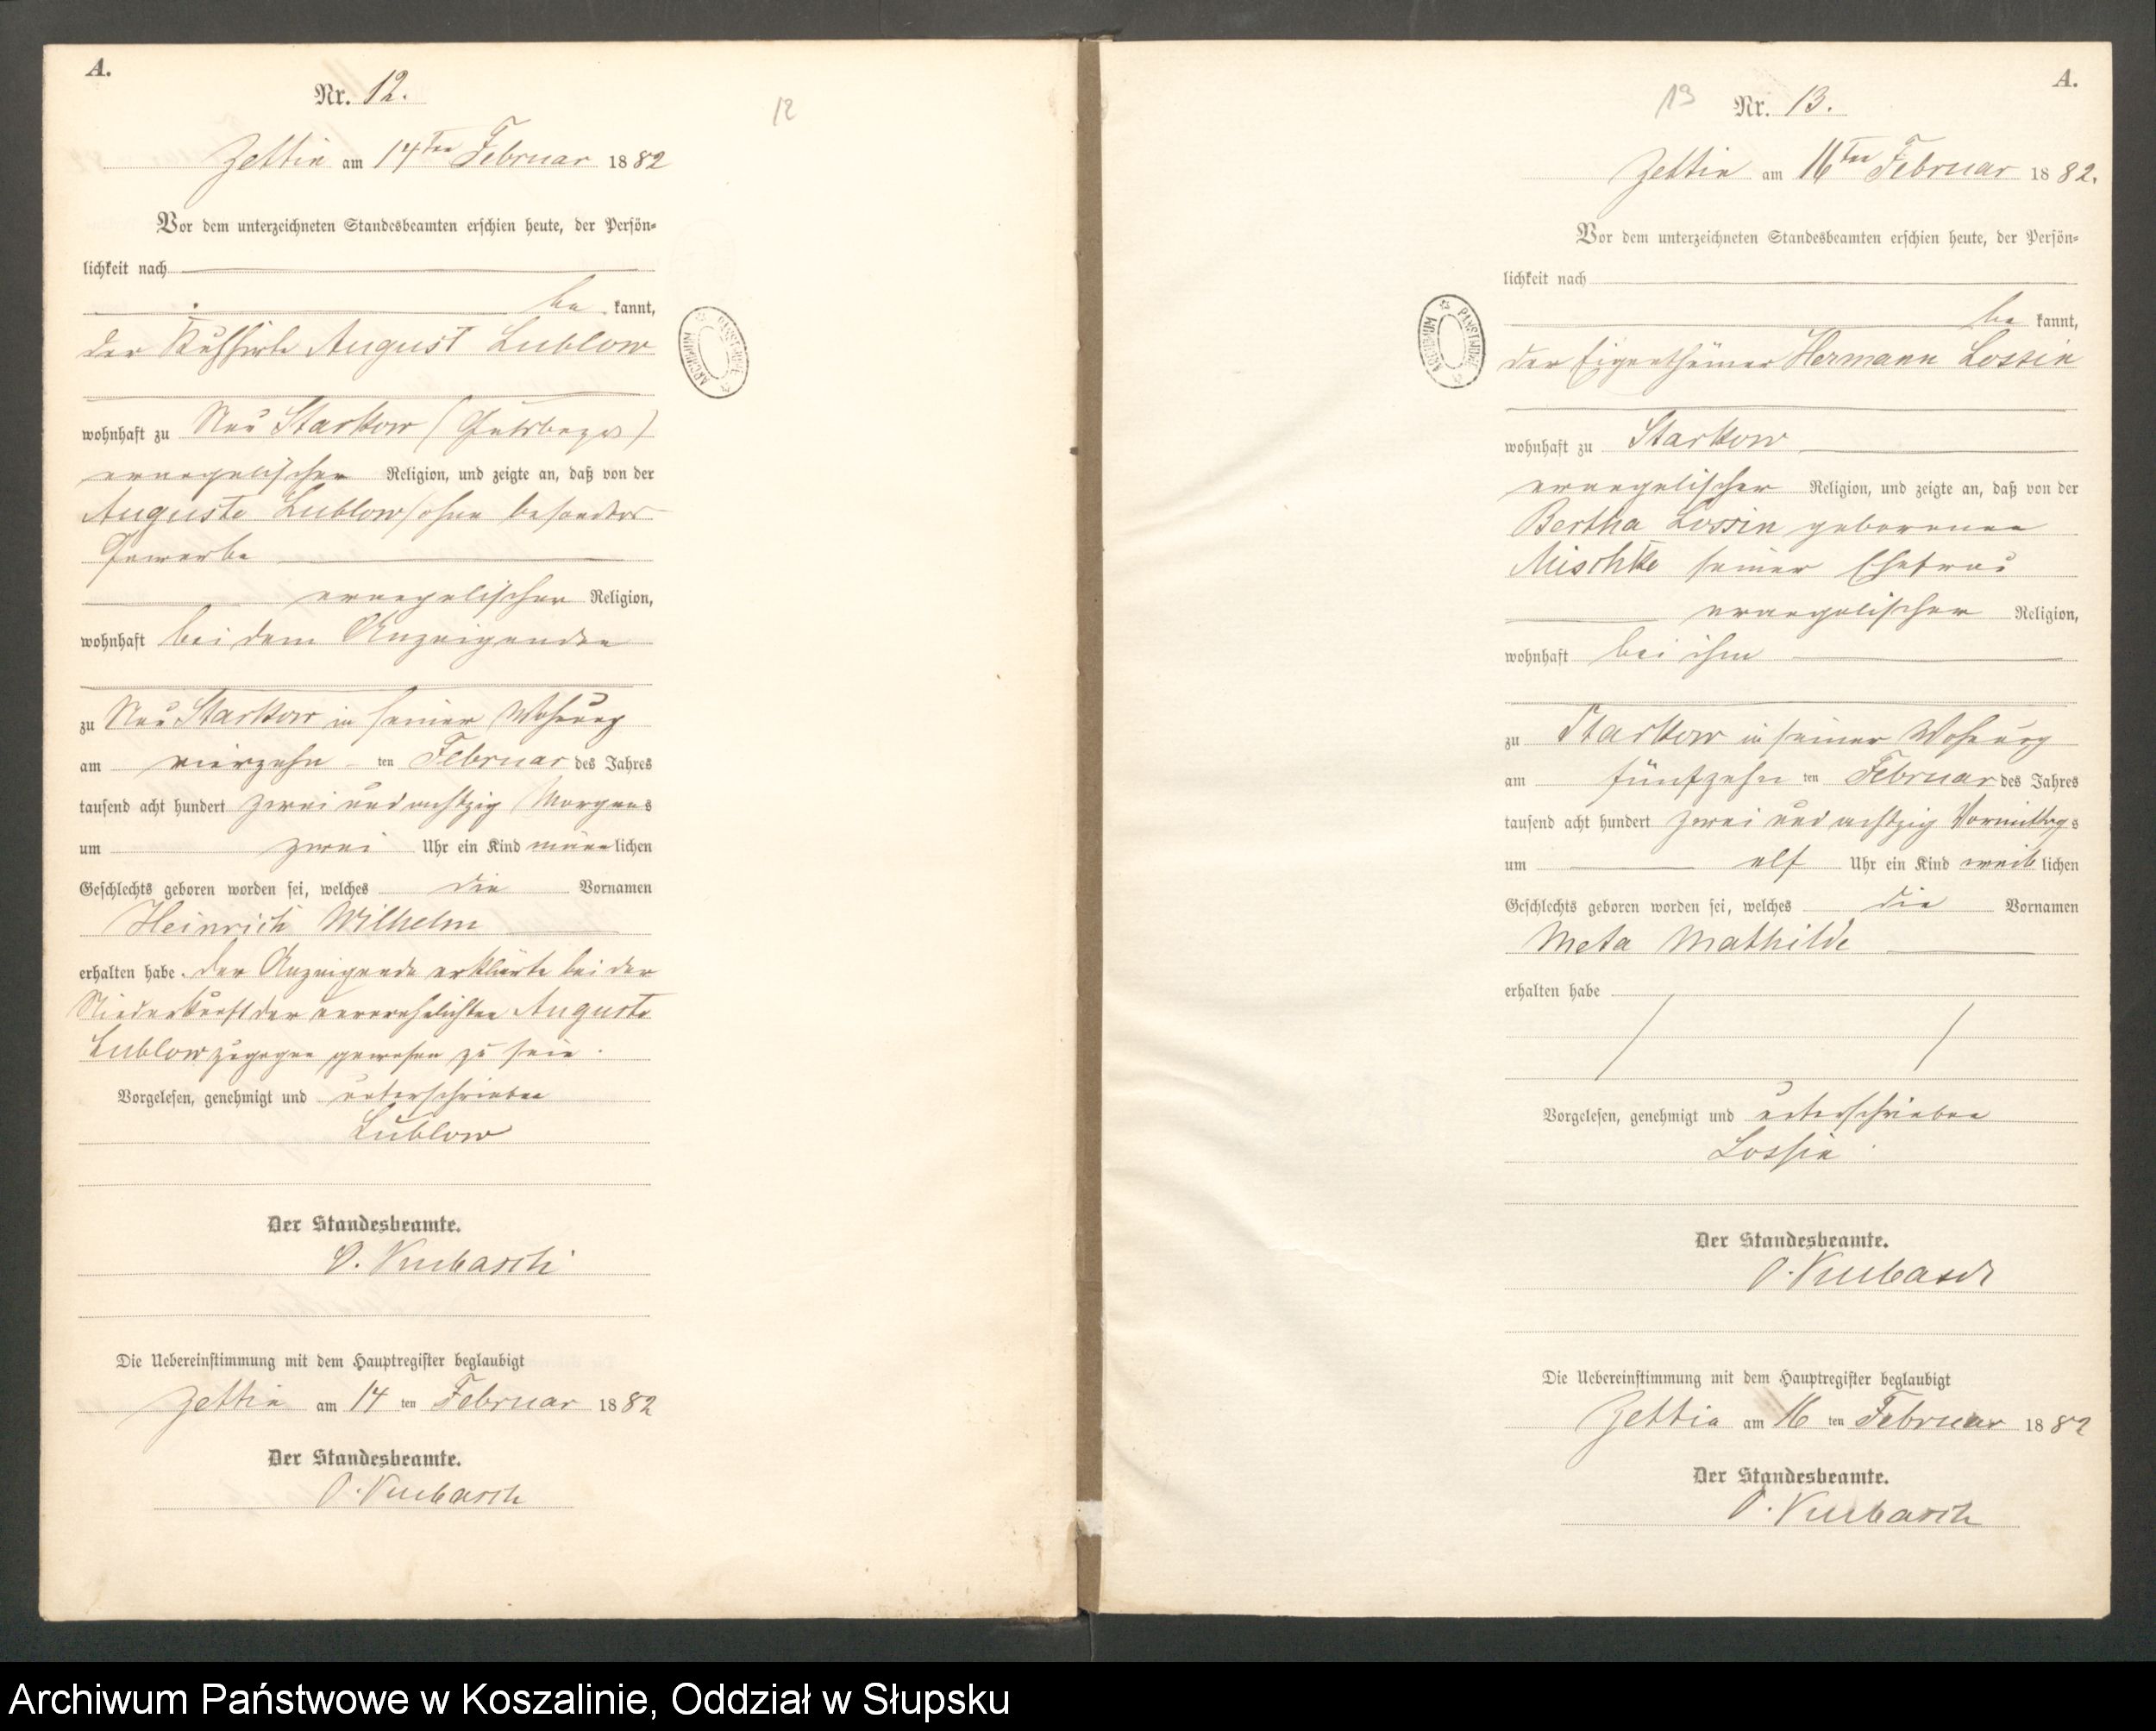 A.
Nr. 12.
12
Zettin am 14ten Februar 1882
Vor dem unterzeichneten Standesbeamten erschien heute, der Persön-
lichkeit nach
be kannt,
der Kuhhirte August Lublow
wohnhaft zu Neu Starkow (Gutsbezirk)
evangelischer Religion, und zeigte an, daß von der
Auguste Lublow ohne besonderes
Gewerbe
evangelischer Religion,
wohnhaft bei dem Anzeigenden
zu Neu Starkow in seiner Wohnung
am vierzehn ten Februar des Jahres
tausend acht hundert zwei und achtzig Morgens
um zwei Uhr ein Kind männlichen
Geschlechts geboren worden sei, welches die Vornamen
Heinrich Wilhelm
erhalten habe. Der Anzeigende erklärte bei der
Niederkunft der unverehelichten Auguste
Lublow zugegen gewesen zu sein.
Vorgelesen, genehmigt und unterschrieben
Lublow
Der Standesbeamte.
O. Kubasch
Die Uebereinstimmung mit dem Hauptregister beglaubigt
Zettin am 14 ten Februar 1882
Der Standesbeamte.
O. Kubasch
ARCHIWUM PAŃSTWOWE
A.
13
Nr. 13.
Zettin am 16ten Februar 1882.
Vor dem unterzeichneten Standesbeamten erschien heute, der Persön-
lichkeit nach
be kannt,
der Eigenthümer Hermann Lossin
wohnhaft zu Starkow
evangelischer Religion, und zeigte an, daß von der
Bertha Lossin geborenen
Mischke seiner Ehefrau
evangelischer Religion,
wohnhaft bei ihm
zu Starkow in seiner Wohnung
am fünfzehn ten Februar des Jahres
tausend acht hundert zwei und achtzig Vormittags
um elf Uhr ein Kind weiblichen
Geschlechts geboren worden sei, welches die Vornamen
Meta Mathilde
erhalten habe
Vorgelesen, genehmigt und unterschrieben
Lossin
Der Standesbeamte.
O. Kubasch
Die Uebereinstimmung mit dem Hauptregister beglaubigt
Zettin am 16 ten Februar 1882
Der Standesbeamte.
O. Kubasch
ARCHIWUM PAŃSTWOWE
Archiwum Państwowe w Koszalinie, Oddział w Słupsku